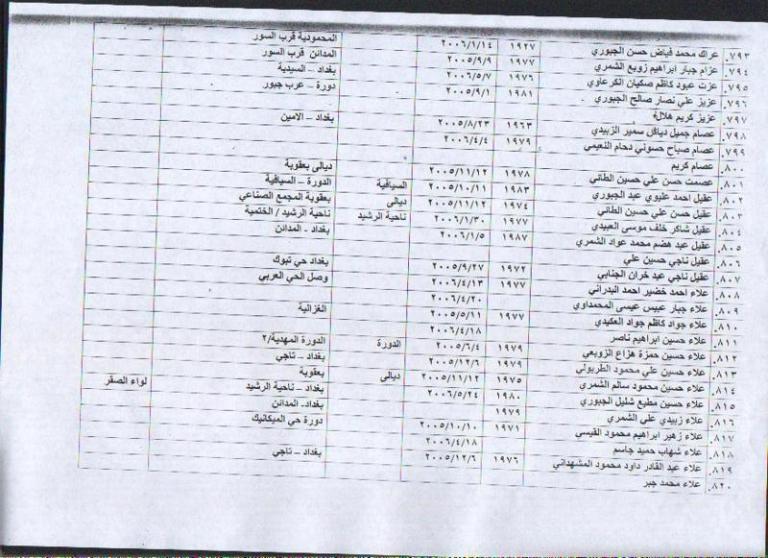 ٧٩٣. عراك محمد فياض حسن الجبوري ١٩٢٧ ٢٠٠٦/١/١٤ المحمودية قرب السور
٧٩٤. عزام جبار ابراهيم زوبع الشمري ١٩٧٧ ٢٠٠٥/٩/٩ المدائن قرب السور
٧٩٥. عزت عبود كاظم صكبان الكرعاوي ١٩٧٦ ٢٠٠٦/٥/٧ بغداد – السيدية
٧٩٦. عزيز علي نصار صالح الجبوري ١٩٨١ ٢٠٠٥/٩/١ دورة – عرب جبور
٧٩٧. عزيز كريم هلال
٧٩٨. عصام جميل سمير الزبيدي ١٩٦٣ ٢٠٠٥/٨/٢٣ بغداد – الامين
٧٩٩. عصام صباح حسوني دحام النعيمي ١٩٧٩ ٢٠٠٦/٤/٤
٨٠٠. عصام كريم
٨٠١. عصمت حسن علي حسين الطائي ١٩٧٨ ٢٠٠٥/١١/١٢ ديالى بعقوبة
٨٠٢. عقيل احمد عليوي عبد الجبوري ١٩٨٣ ٢٠٠٥/١٠/١١ السيافية الدورة – السيافية
٨٠٣. عقيل حسن علي حسين الطائي ١٩٧٤ ٢٠٠٥/١١/١٢ ديالى بعقوبة المجمع الصناعي
٨٠٤. عقيل شاكر خلف موسى العبيدي ١٩٧٧ ٢٠٠٦/١/٣٠ ناحية الرشيد ناحية الرشيد / الختمية
٨٠٥. عقيل عبد هضم محمد عواد الشمري ١٩٨٧ ٢٠٠٦/١/٥ بغداد - المدائن
٨٠٦. عقيل ناجي حسين علي
٨٠٧. عقيل ناجي عبد خران الجنابي ١٩٧٢ ٢٠٠٥/٩/٢٧ بغداد حي تبوك
٨٠٨. علاء احمد خضير احمد البدراني ١٩٧٧ ٢٠٠٦/٤/١٣ وصل الحي العربي
٨٠٩. علاء جبار عبيس عيسى المحمداوي ٢٠٠٦/٤/٢٠
٨١٠. علاء جواد كاظم جواد العكيدي ١٩٧٧ ٢٠٠٥/٥/١١ الغزالية
٨١١. علاء حسين ابراهيم ناصر ٢٠٠٦/٤/١٨
٨١٢. علاء حسين حمزة هزاع الزوبعي ١٩٧٩ ٢٠٠٥/٦/٤ الدورة الدورة المهدية/٢
٨١٣. علاء حسين علي محمود الطربولي ١٩٧٩ ٢٠٠٥/١٢/٦ بغداد – تاجي
٨١٤. علاء حسين محمود سالم الشمري ١٩٧٥ ٢٠٠٥/١١/١٢ ديالى بعقوبة
٨١٥. علاء حسين مطيع شليل الجبوري ١٩٨٠ ٢٠٠٦/٥/٢٤ بغداد – ناحية الرشيد لواء الصقر
٨١٦. علاء زبيدي علي الشمري ١٩٧٩ بغداد- المدائن
٨١٧. علاء زهير ابراهيم محمود القيسي ١٩٧١ ٢٠٠٥/١٠/١٠ دورة حي الميكانيك
٨١٨. علاء شهاب حميد جاسم ٢٠٠٦/٤/١٨
٨١٩. علاء عبد القادر داود محمود المشهداني ١٩٧٦ ٢٠٠٥/١٢/٦ بغداد – تاجي
٨٢٠. علاء محمد جبر